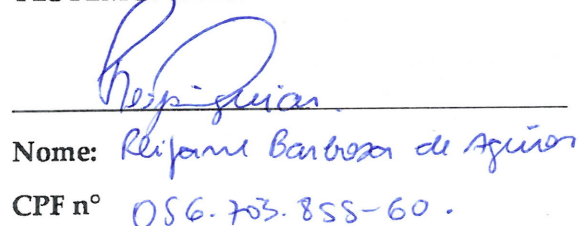 Nome: Reijane Barbosa de Aguiar
CPF nº 056.703.855-60.